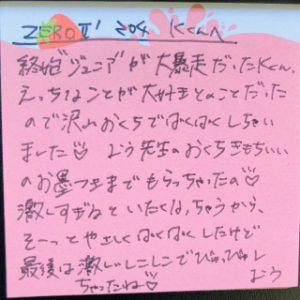 ZERO Ⅱ 204 Kくんへ
終始ジュニアが大暴走だったKくん。
えっちなことが大好きとのことだった
ので沢山おくちでぱくぱくしちゃい
ました♡ よう先生のおくちきもちいい
のお墨つきまでもらっちゃったの♡
激しすぎるといたくなっちゃうから、
そーっとやさしくぱくぱくしたけど
最後は激しいシコシコでびゅっびゅし
ちゃったね♡ よう